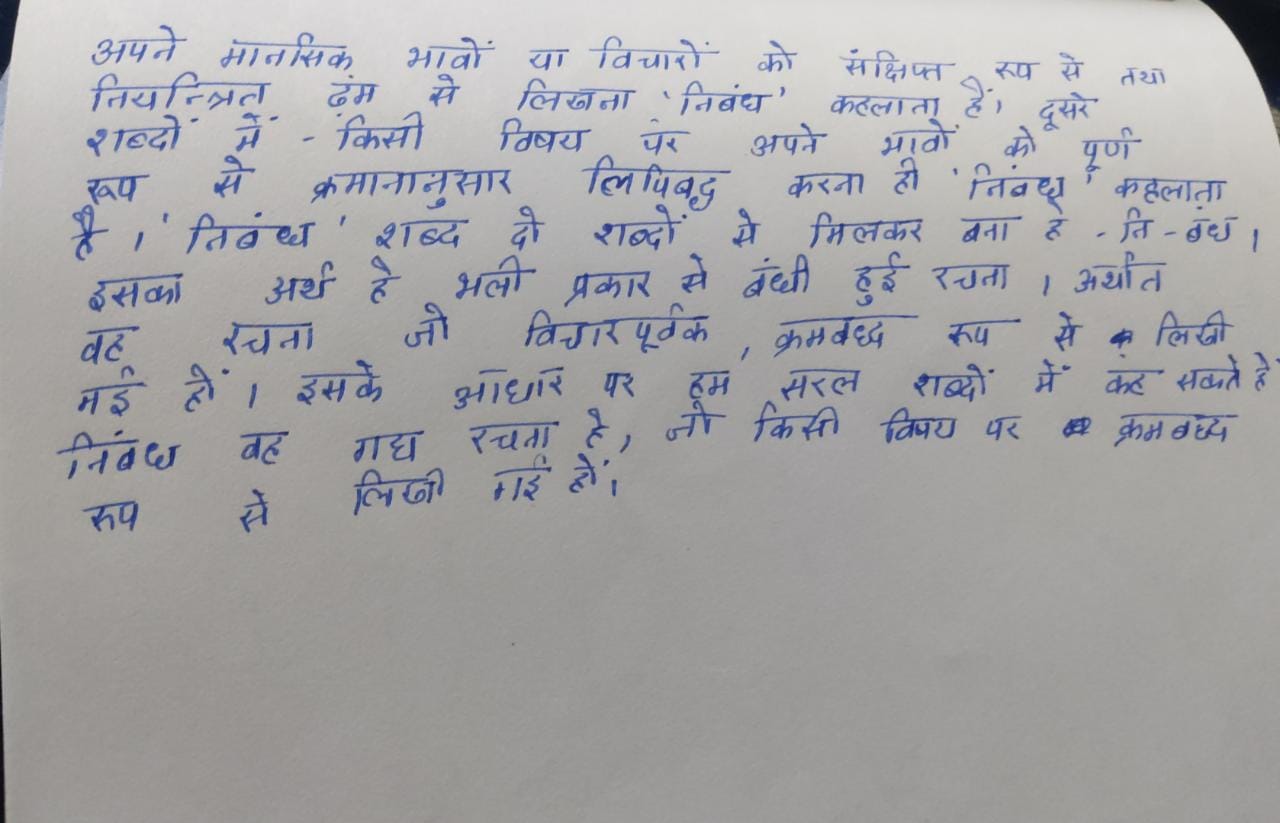 अपने मानसिक भावों या विचारों को संक्षिप्त रूप से तथा
नियन्त्रित ढ़ंग से लिखना 'निबंध' कहलाता हैं। दूसरे
शब्दों में - किसी विषय पर अपने भावों को पूर्ण
रूप से क्रमानानुसार लिपिबद्ध करना ही 'निबंध' कहलाता
है। 'निबंध' शब्द दो शब्दों से मिलकर बना है - नि - बंध।
इसका अर्थ है भली प्रकार से बंधी हुई रचना। अर्थात
वह रचना जो विचारपूर्वक, क्रमबध्द रूप से लिखी
गई हों। इसके आधार पर हम सरल शब्दों में कह सकते हैं
निबंध वह गद्य रचना है, जो किसी विषय पर क्रमबध्द
रूप से लिखी गई हों।